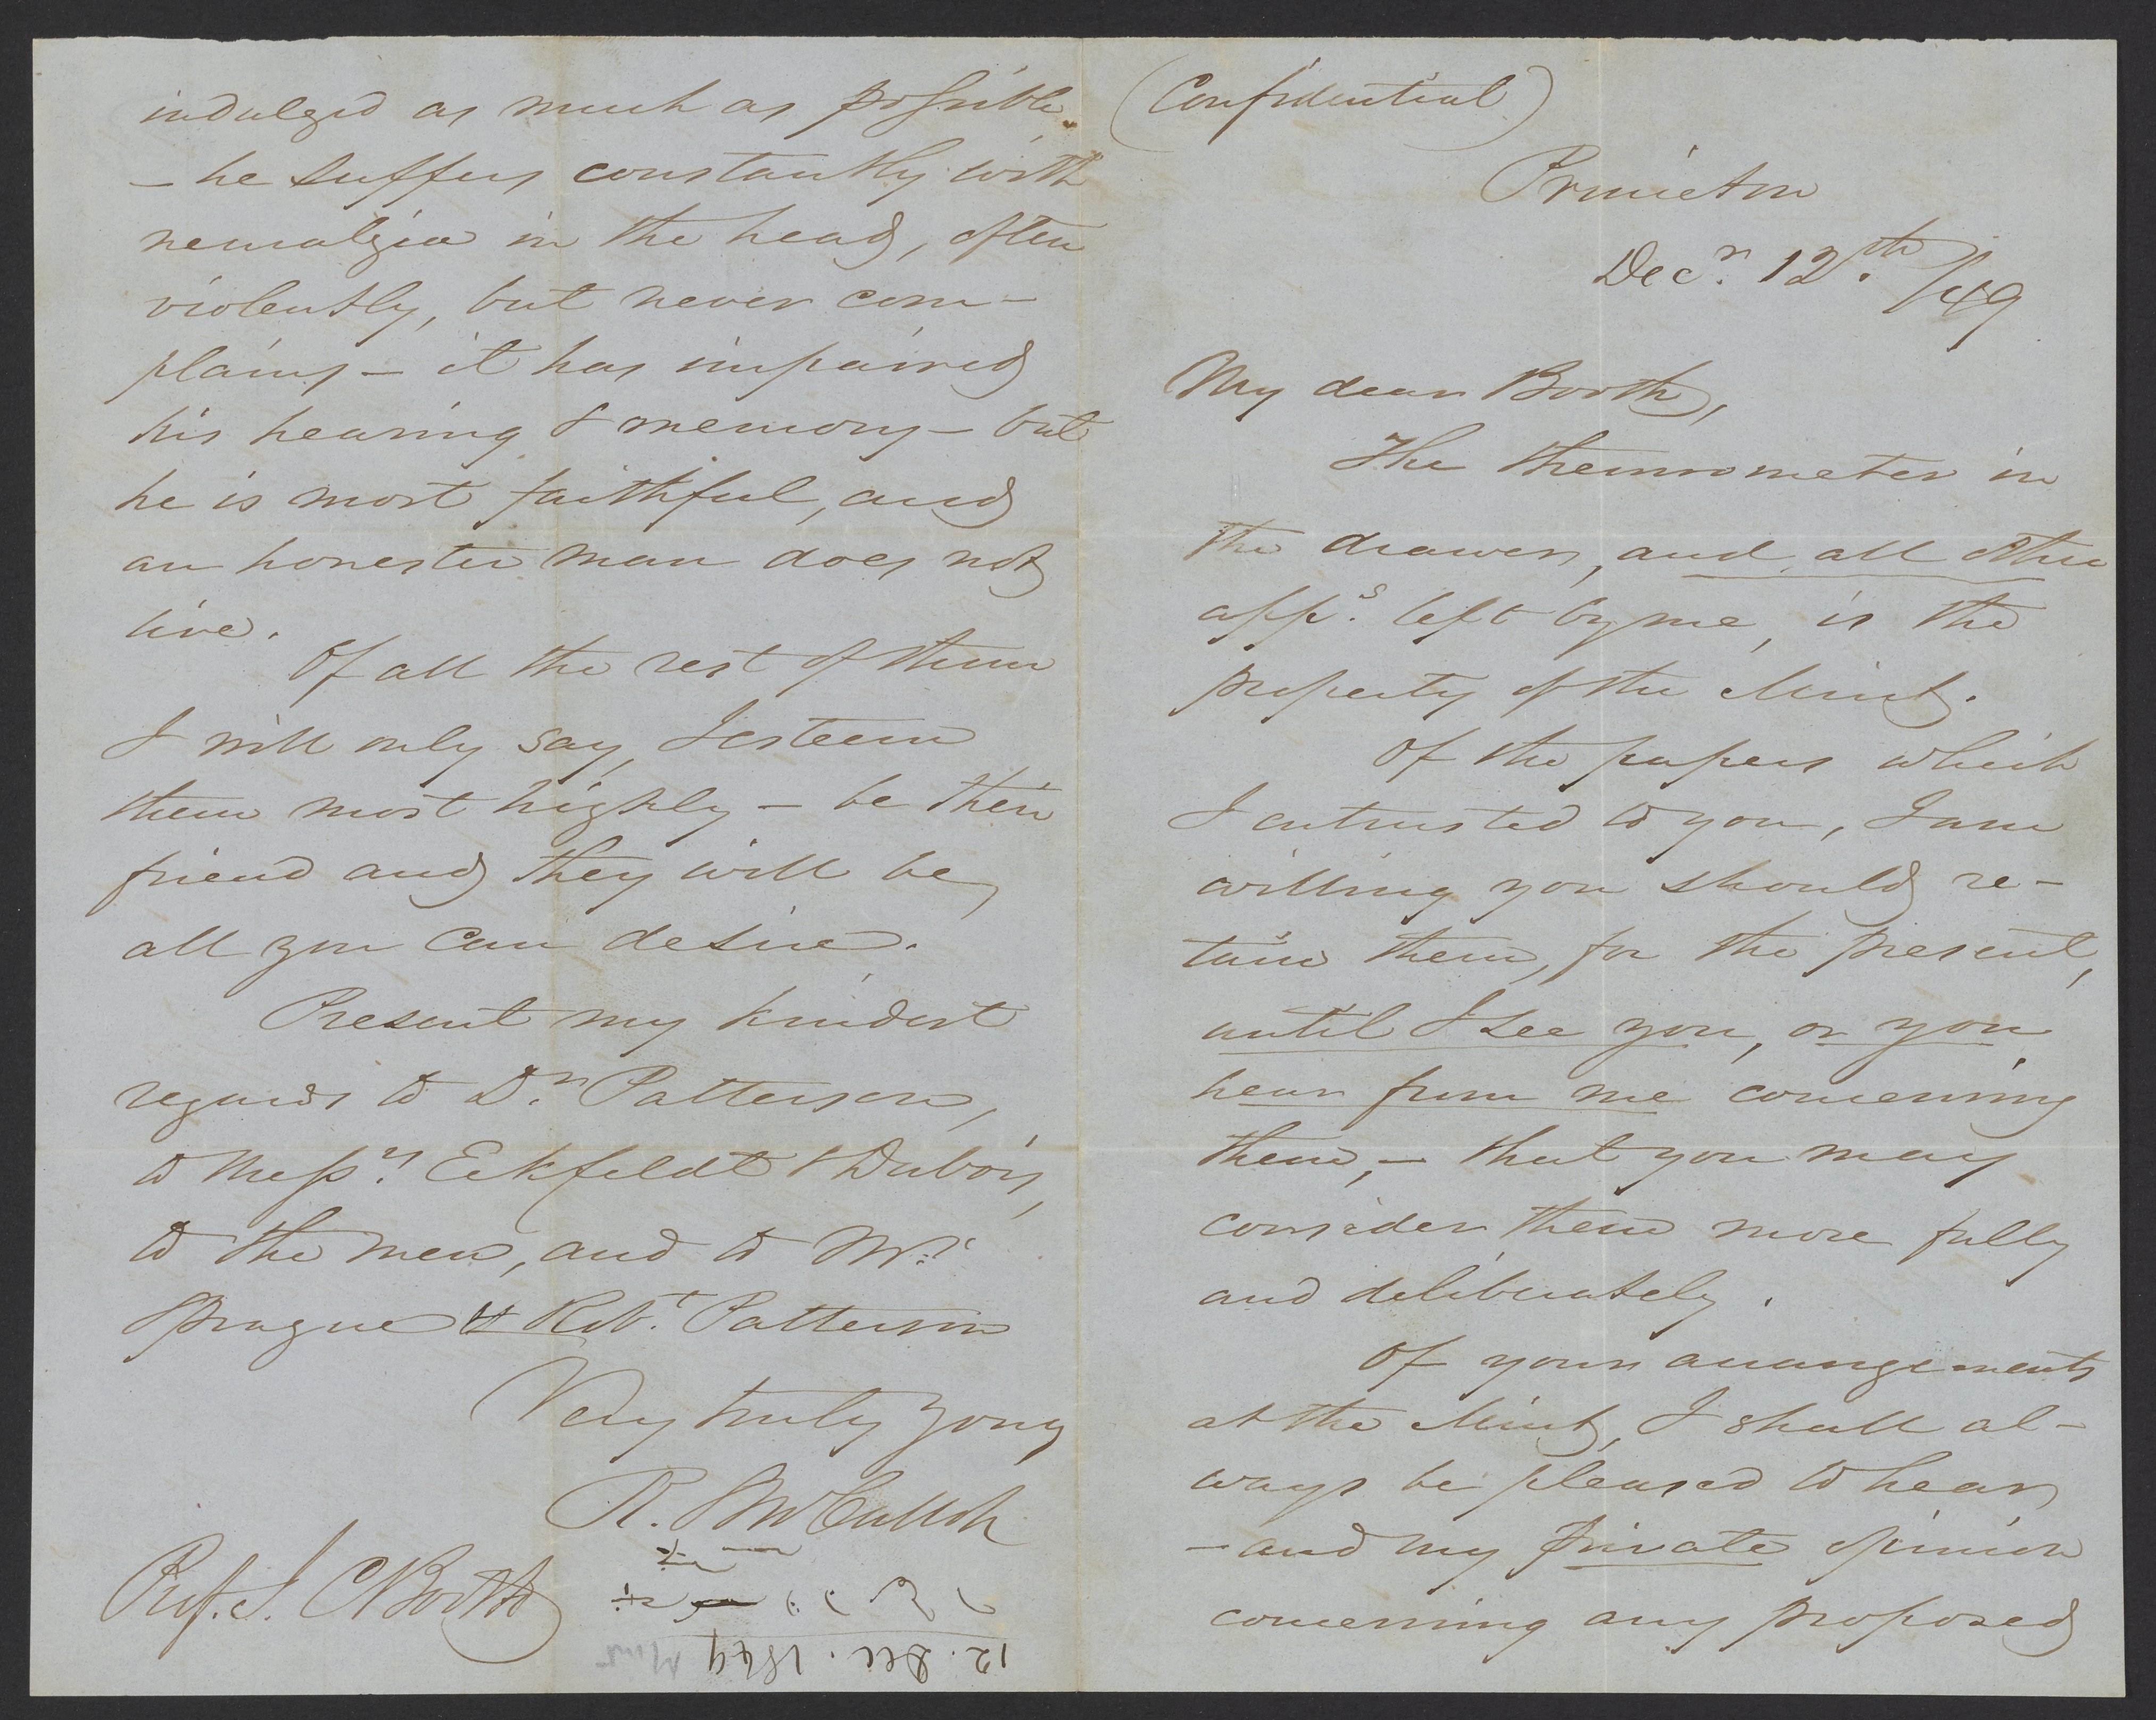 (Confidential)
Princeton
Decr. 12th./49
My dear Booth,
The thermometer in
the drawer, and all other
apps. left by me, is the
property of the Mint.
Of the papers which
I entrusted to you, I am
willing you should re-
tain them, for the present,
until I see you, or you
hear from me concerning
them, — that you may
consider them more fully
and deliberately.
Of your arrangements
at the Mint, I shall al-
ways be pleased to hear
— and my private opinion
concerning any proposed
indulged as much as possible.
— he suffers constantly with
neuralgia in the head, often
violently, but never com-
plains — it has impaired
his hearing & memory — but
he is most faithful, and
an honester man does not
live.
Of all the rest of them
I will only say, I esteem
them most highly — be their
friend and they will be,
all you can desire.
Present my kindest
regards to Dr. Patterson,
to Messrs. Eckfeldt & Dubois,
to the men, and to Mr.
Sprague & Robt. Patterson
Very truly yours
R. S. McCulloh
Prof. J. C. Booth
12. Dec. 1849 Mint